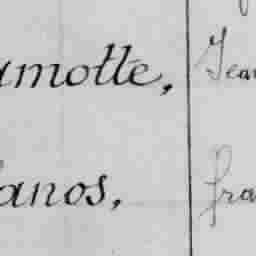 amotte, Jea
anos, fra